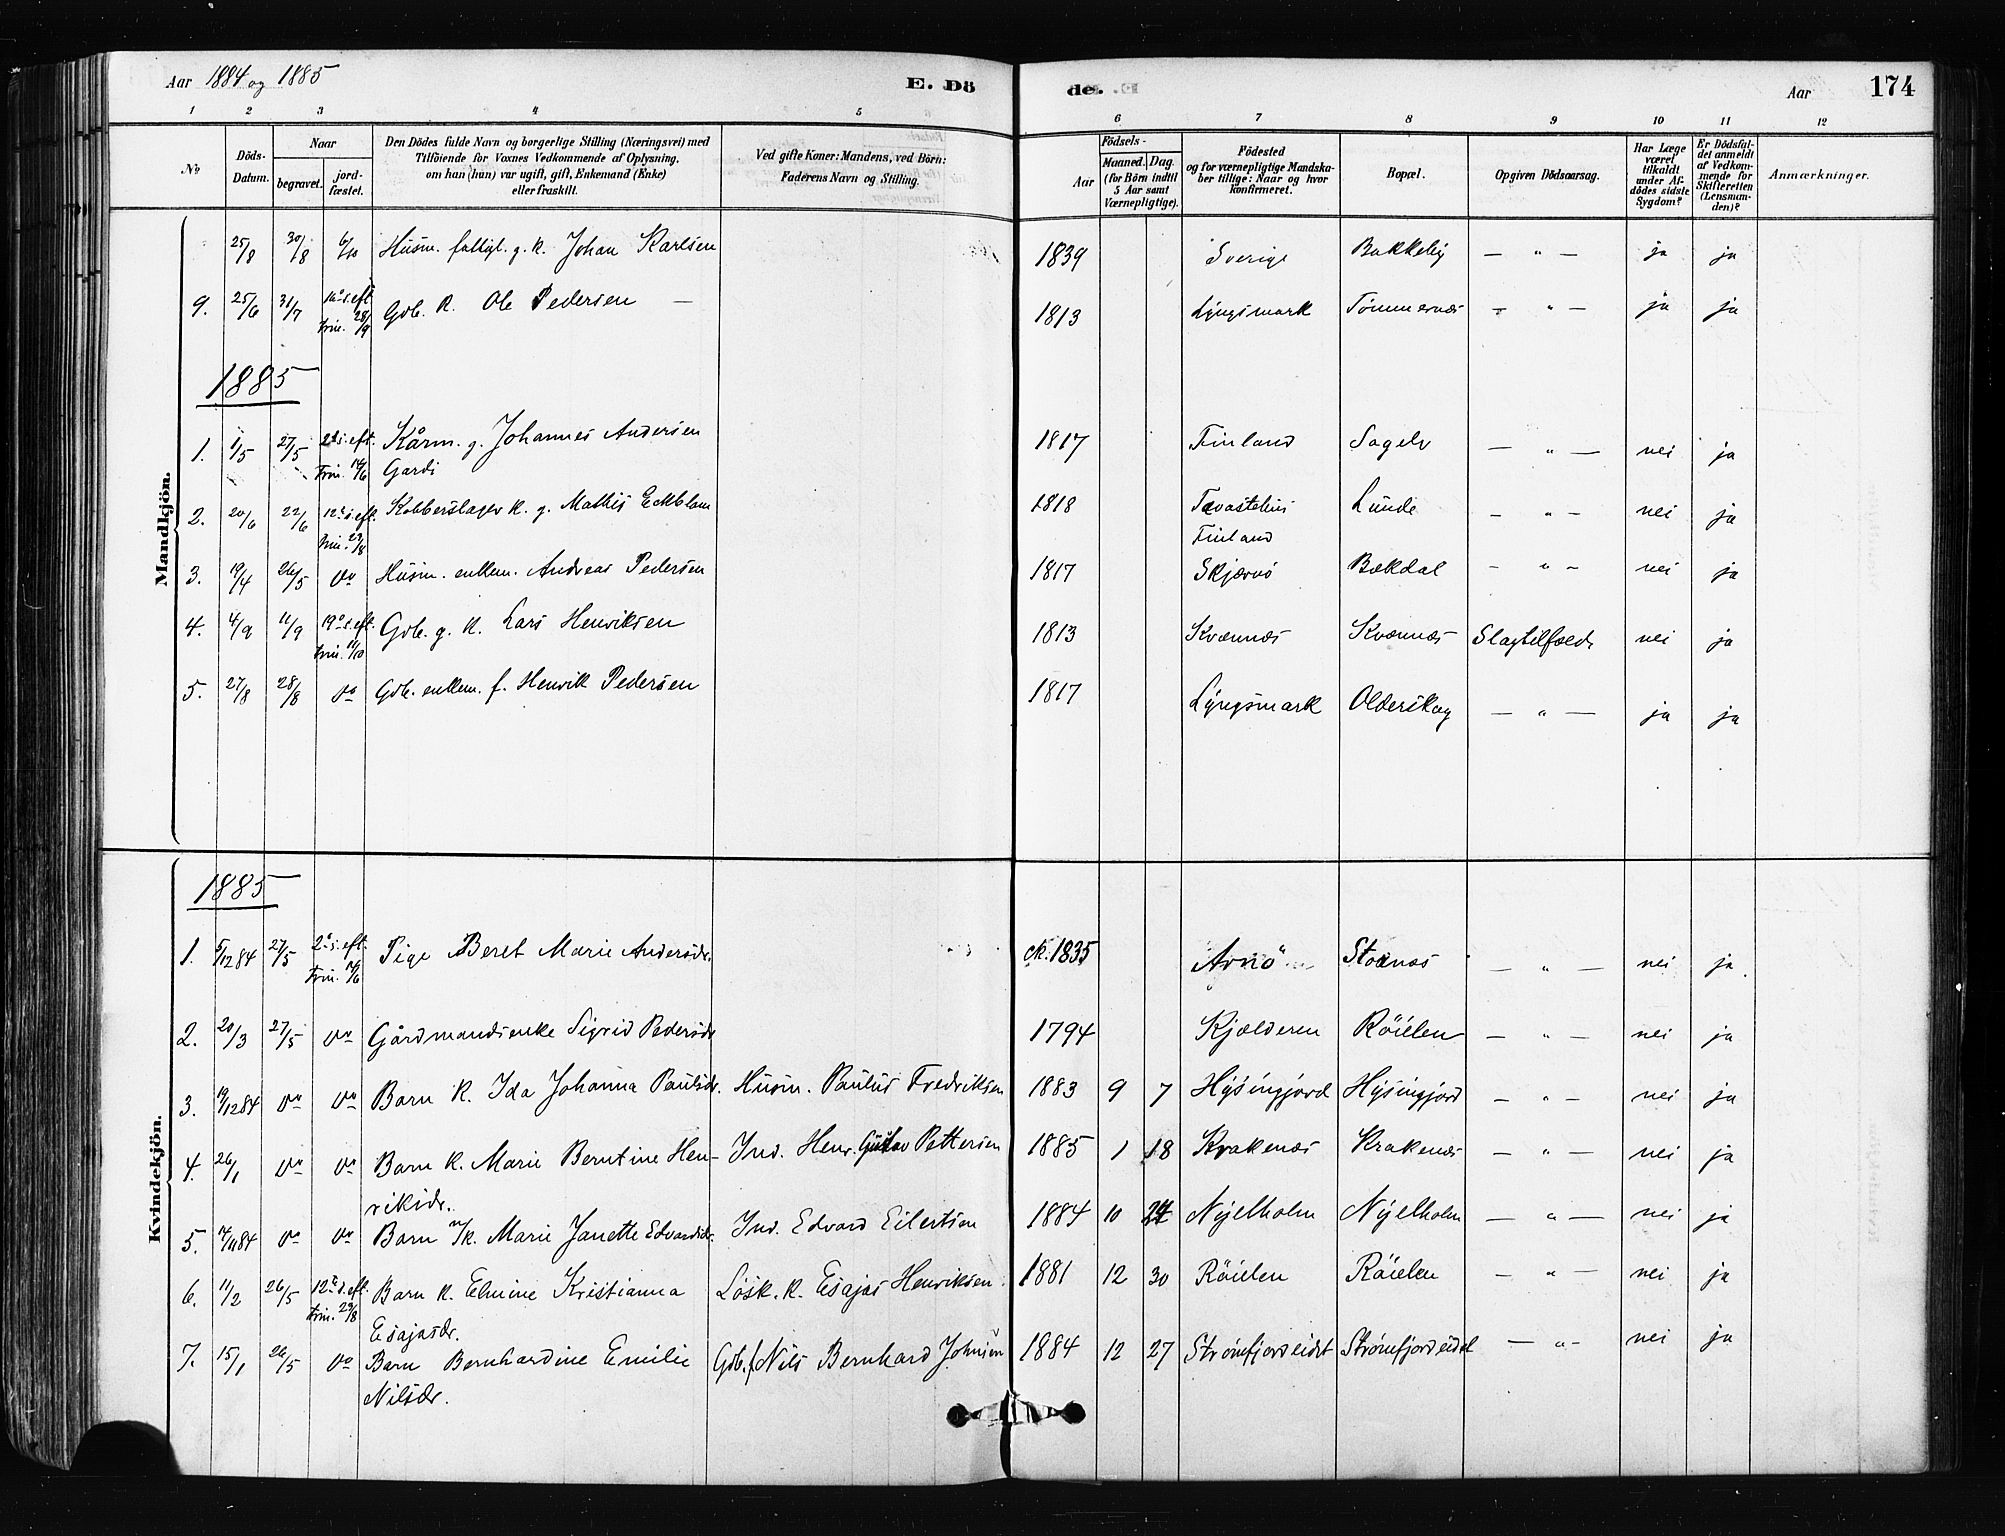 Aar 1884 og 1885
E. Dö
de.
Aar
174
1 2 3 4 5 6 7 8 9 10 11 12
No
Döds-
Datum.
Naar
begravet.
jord-
fæstet.
Den Dödes fulde Navn og borgerlige Stilling (Næringsvei) med
Tilföiende for Voxnes Vedkommende af Oplysning,
om han (hun) var ugift, gift, Enkemand (Enke)
eller fraskilt.
Ved gifte Koner: Mandens, ved Börn:
Faderens Navn og Stilling.
Födsels-
Aar
Maaned. Dag.
(for Börn indtil
5 Aar samt
Værnepligtige).
Födested
og for værnepligtige Mandska-
ber tillige: Naar og hvor
konfirmeret.
Bopæl.
Opgiven Dödsaarsag.
Har Læge
været
tilkaldt
under Af-
dödes sidste
Sygdom?
Er Dödsfal-
det anmeldt
af Vedkom-
mende for
Skifteretten
(Lensman-
den)?
Anmærkninger.
Mandkjön.
25/8 30/8 6/10 Husm. fattigl. g. k. Johan Karlsen 1839 Sverige Bakkeby — " — ja ja
9. 25/6 31/7 16de s. eft. Trin. 28/9 Gdb. k. Ole Pedersen — 1813 Lyngsmark Tømmernæs — " — ja ja
1885
1. 1/5 27/5 2d s. eft. Kårm. g. Johannes Andersen 1817 Finland Sagelv — " — nei ja
Trin. 14/6 Gardi
2. 20/6 22/6 12te s. eft. Kobberslager k. g. Mathis Eckblom 1818 Tavastehus Lunde — " — nei ja
Trin. 23/8 Finland
3. 19/4 26/5 do Husm. enkem. Andreas Pedersen 1817 Skjærvø Bækdal — " — nei ja
4. 4/9 11/9 19de s. eft. Gdb. g. k. Lars Henriksen 1813 Kvænnæs Kvænnæs Slagtilfælde nei ja
Trin. 11/10
5. 27/8 28/8 do Gdb. enkem. f. Henrik Pedersen 1817 Lyngsmark Olderskog — " — ja ja
Kvindekjön.
1885
1. 5/12 84 27/5 2d s. eft. Pige Beret Marie Andersdr. ck. 1835 Arnø Stornæs — " — nei ja
Trin. 14/6
2. 20/3 27/5 do Gårdmandsenke Sigrid Pedersdr 1794 Kjælderen Röielen — " — nei ja
3. 19/12 84 do do Barn k. Ida Johanna Paulsdr. Husm. Paulus Fredriksen 1883 9 7 Hysingjord Hysingjord — " — nei ja
4. 26/1 do do Barn k. Marie Berntine Hen- Ind. Henr. Gustav Pettersen 1885 1 18 Krakenæs Krakenæs — " — nei ja
riksdr.
5. 14/11 84 do do Barn n/k. Marie Janette Edvardsdr. Ind. Edvard Eilertsen 1884 10 24 Nyelholm Nyelholm — " — nei ja
6. 11/2 26/5 12te s. eft. Barn k. Elmine Kristianna Løsk. k. Esajas Henriksen 1881 12 30 Röielen Röielen — " — nei ja
Trin. 23/8 Esajasdr.
7. 15/1 26/5 do Barn Bernhardine Emilie Gdb. f Nils Bernhard Johnsen 1884 12 27 Strømfjordeidet Strømfjordeidet — " — nei ja
Nilsdr.